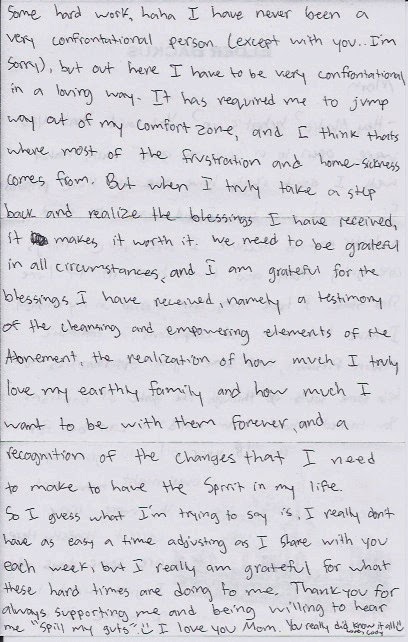 some hard work, haha I have never been a
very confrontational person (except with you.. I'm
sorry), but out here I have to be very confrontational
in a loving way. It has required me to jump
way out of my comfort zone, and I think thats
where most of the frustration and home-sickness
comes from. But when I truly take a step
back and realize the blessings I have received,
it makes it worth it. We need to be grateful
in all circumstances, and I am grateful for the
blessings I have received, namely a testimony
of the cleansing and empowering elements of the
Atonement, the realization of how much I truly
love my earthly family and how much I
want to be with them forever, and a
recognition of the changes that I need
to make to have the Spirit in my life.
So I guess what I'm trying to say is, I really don't
have as easy a time adjusting as I share with you
each week, but I really am grateful for what
these hard times are doing to me. Thank you for
always supporting me and being willing to hear
me "spill my guts" I love you Mom. You really did know it all
Love, Cody